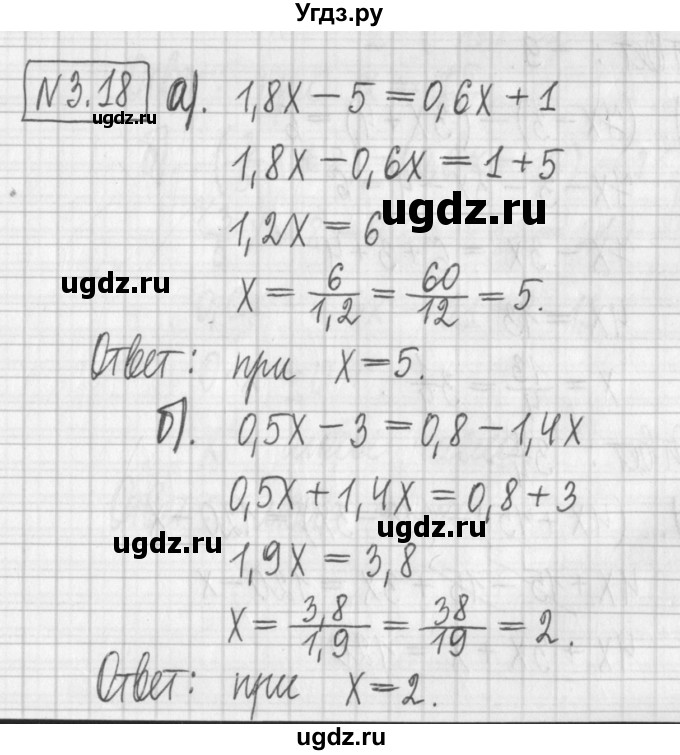 Угдз.ру
N 3.18 а). 1,8x − 5 = 0,6x + 1
ugdz.ru
1,8x − 0,6x = 1 + 5
ugdz.ru
1,2x = 6
ugdz.ru
x = 6/1,2 = 60/12 = 5.
Ответ: при x = 5.
б). 0,5x − 3 = 0,8 − 1,4x
0,5x + 1,4x = 0,8 + 3
ugdz.ru
ugdz.ru
1,9x = 3,8
x = 3,8/1,9 = 38/19 = 2.
Ответ: при x = 2.
ugdz.ru